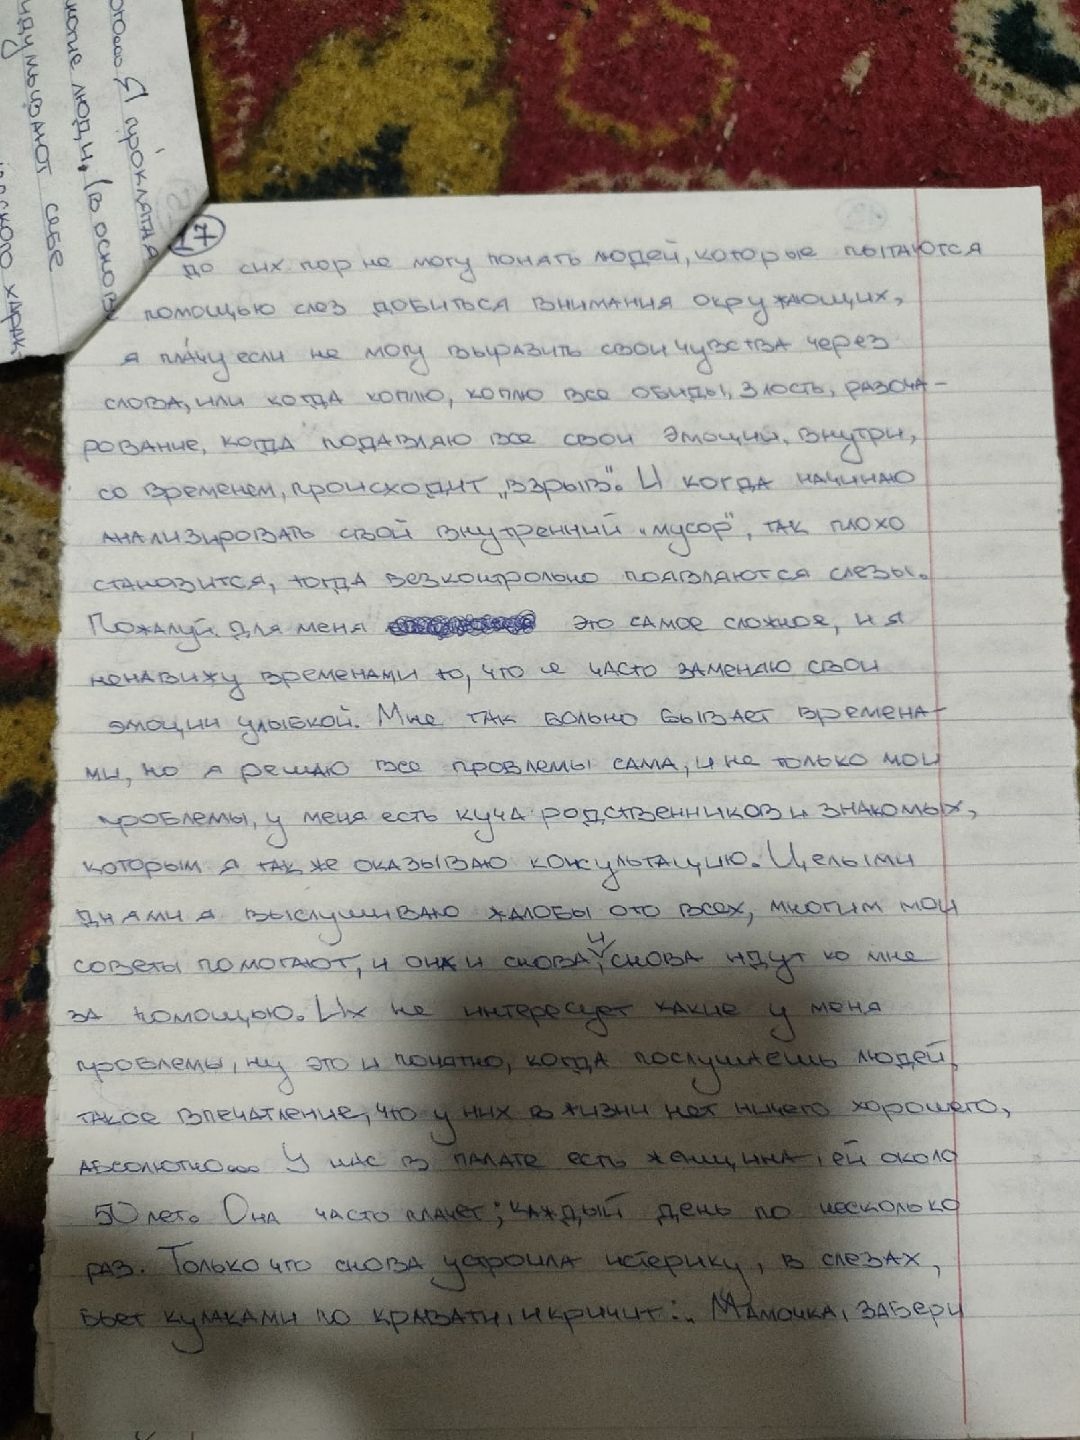 ого... Я проклятна
люди, (в основ
думывают себе
ского харак
17
до сих пор не могу понять людей, которые пытаются
помощью слез добиться внимания окружающих,
я пла́чу если не могу выразить свои чувства через
слова, или когда коплю, коплю все обиды, злость, разоча-
рование, когда подавляю все свои эмоции, внутри,
со временем, происходит „взрыв". И когда начинаю
анализировать свой внутренний „мусор", так плохо
становится, тогда безконтрольно появляются слезы.
Пожалуй для меня это самое сложное, и я
ненавижу временами то, что я часто заменяю свои
эмоции улыбкой. Мне так больно бывает времена-
ми, но я решаю все проблемы сама, и не только мои
проблемы, у меня есть куча родственников и знакомых,
которым я так же оказываю консультацию. Целыми
днями я выслушиваю жалобы ото всех, многим мои
советы помогают, и они и снова и снова идут ко мне
за помощью. Их не интересует какие у меня
проблемы, ну это и понятно, когда послушаешь людей,
такое впечатление, что у них в жизни нет ничего хорошего,
абсолютно... У нас в палате есть женщина, ей около
50 лет. Она часто плачет; каждый день по несколько
раз. Только что снова устроила истерику, в слезах,
бьет кулаками по кравати, и кричит: „Мамочка, забери